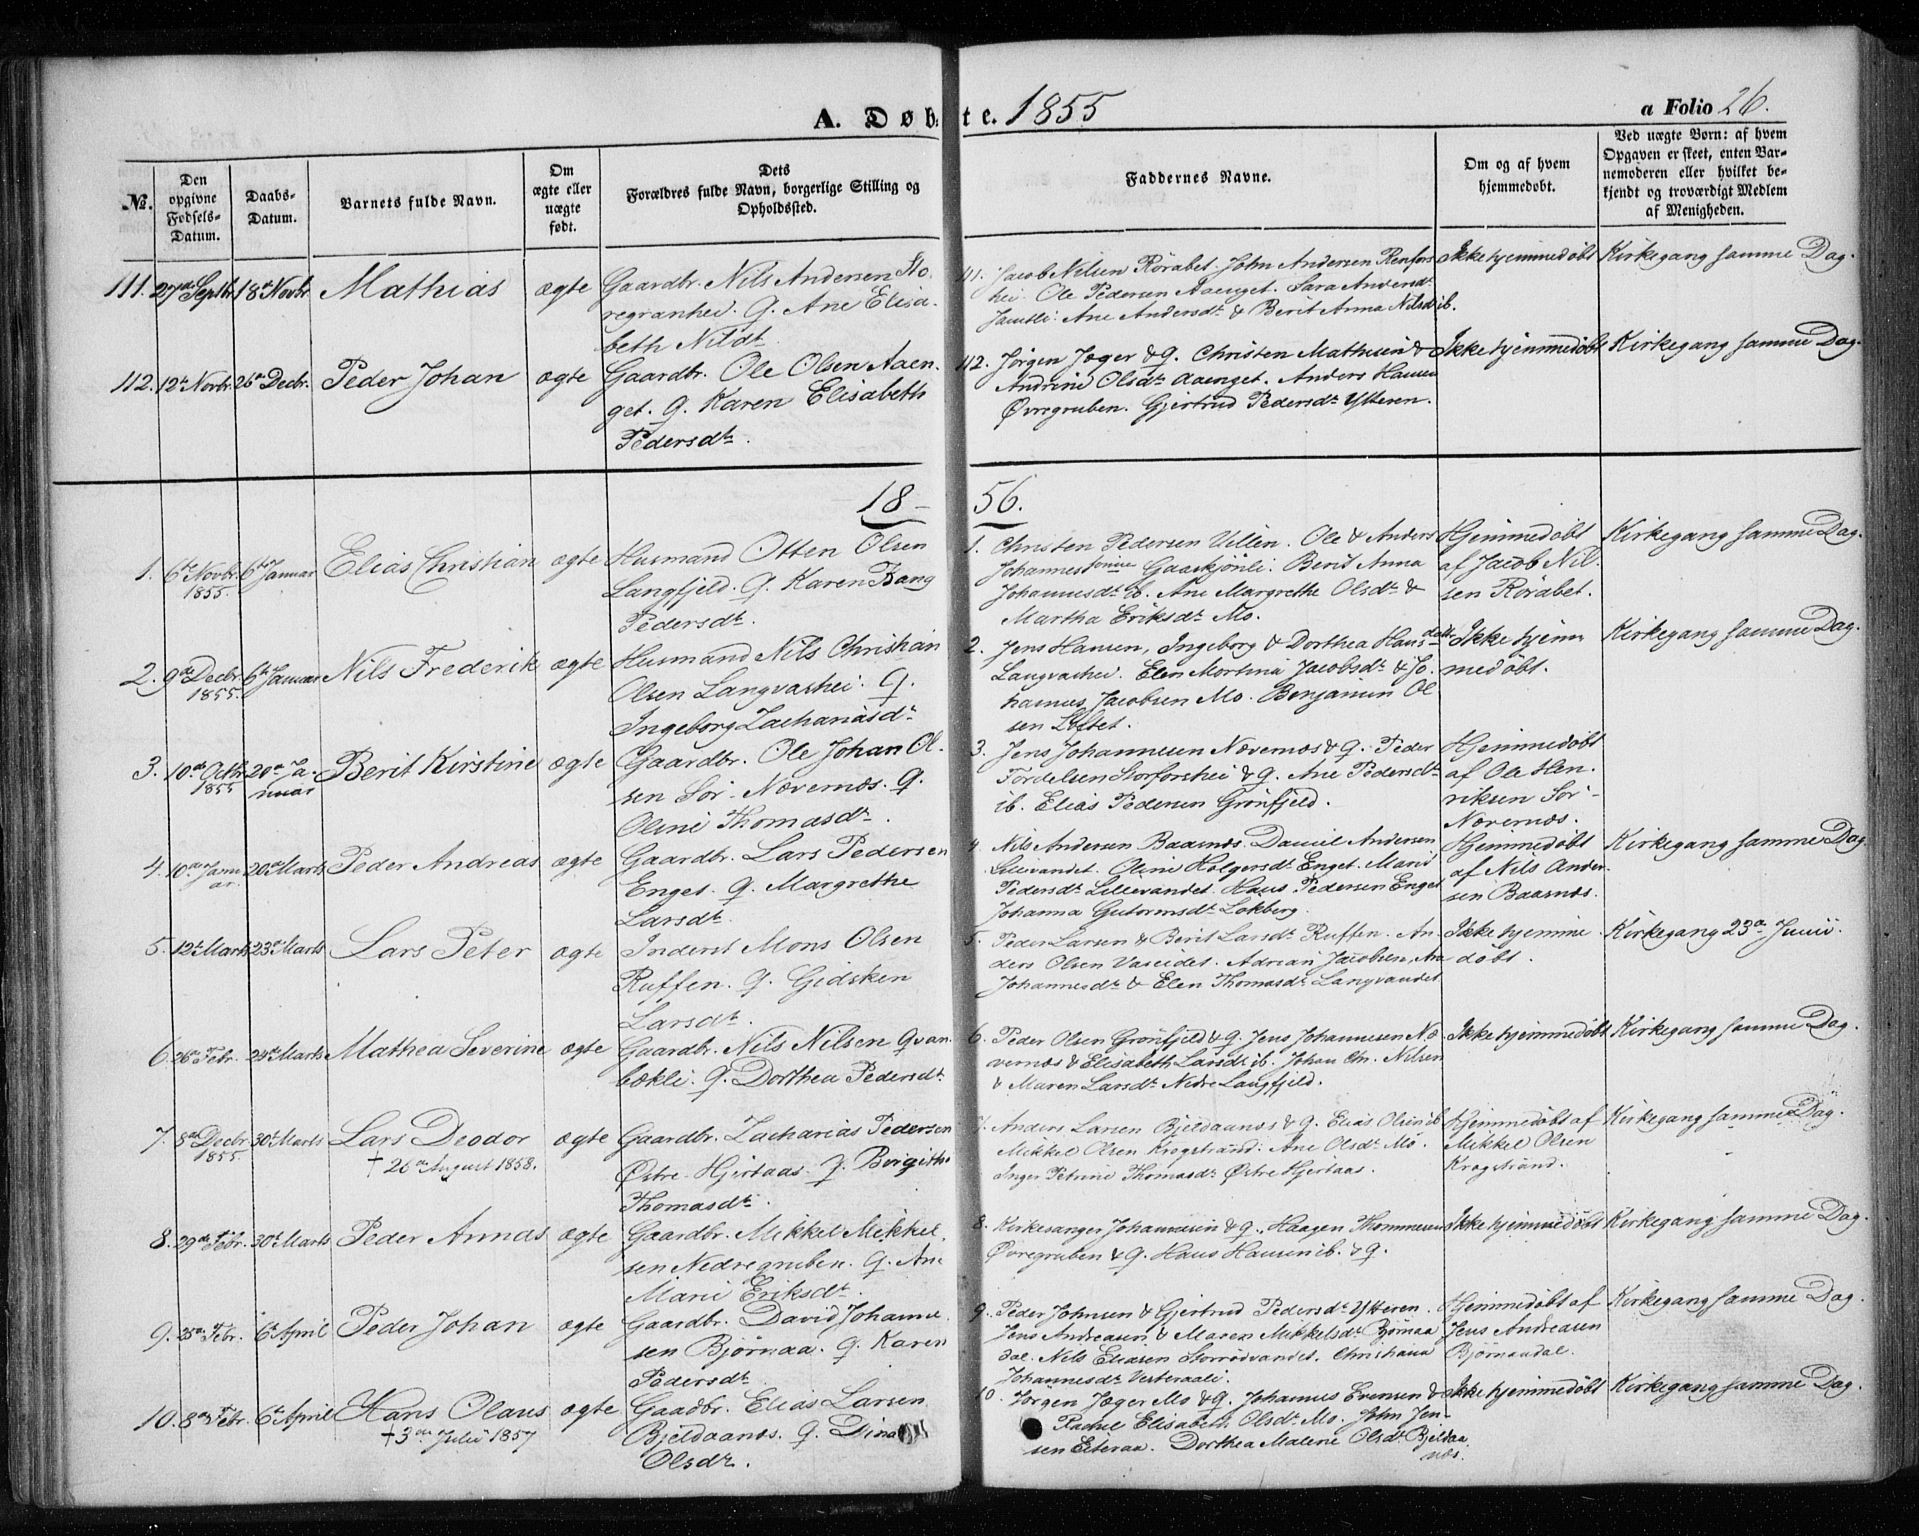 A. Døbte. 1855
a Folio 26.
№.
Den opgivne Fødsels-Datum.
Daabs-Datum.
Barnets fulde Navn.
Om ægte eller uægte født.
Dets Forældres fulde Navn, borgerlige Stilling og Opholdssted.
Faddernes Navne.
Om og af hvem hjemmedøbt.
Ved uægte Børn: af hvem Opgaven er skeet, enten Barnemoderen eller hvilket bekjendt og troværdigt Medlem af Menigheden.
111. 27de Septbr 18de Novbr Mathias ægte Gaardbr. Nils Andersen Sto-
regranhei. G. Ane Elisa-
beth Nilsdtr
111. Jacob Nilsen Rørabet. John Andersen Renfors-
hei. Ole Pedersen Aaenget. Sara Andersdtr
Jamtli. Ane Andersdtr & Berit Anna Nilsdtr ib.
Ikke hjemmedøbt Kirkegang samme Dag.
112. 12te Novbr. 26de Decbr. Peder Johan ægte Gaardbr. Ole Olsen Aaen-
get. G. Karen Elisabeth
Pedersdtr.
112. Jørgen Jæger & G. Christen Mathisen &
Andrine Olsdtr Aaenget. Anders Hansen
Øvregruben. Gjertrud Pedersdtr Ytteren.
Ikke hjemmedøbt Kirkegang samme Dag.
18-56.
1. 6te Novbr. 1855. 6te Januar Elias Christian ægte Husmand Otten Olsen
Langfjeld. G. Karen Bang
Pedersdtr.
1. Christen Pedersen Villen. Ole & Anders
Johannessønner Gaaskjønli. Berit Anna
Johannesdtr ib. Ane Margrethe Olsdtr &
Martha Eriksdtr Mo.
Hjemmedøbt
af Jacob Nil-
sen Rørabet.
Kirkegang samme Dag.
2. 9de Decbr. 1855. 6te Januar Nils Frederik ægte Husmand Nils Christian
Olsen Langvashei. G.
Ingeborg Zachariasdtr
2. Jens Hansen, Ingeborg & Dorthea Hansdøttr
Langvashei. Elen Martina Jacobsdtr & Jo-
hannes Jacobsen Mo. Benjamin Ol-
sen Loftet.
Ikke hjem-
medøbt.
Kirkegang samme Dag.
3. 10de Octbr 1855 20de Ja-
nuar Berit Kirstine ægte Gaardbr. Ole Johan Ol-
sen Sør-Nævernæs. G.
Oline Thomasdtr.
3. Jens Johannesen Nævernæs & G. Peder
Fordelsen Storforshei & G. Ane Pedersdtr
ib. Elias Pedersen Grønfjeld.
Hjemmedøbt
af Ole Hen-
riksen Sør-
Nævernæs.
4. 10de Janu-
ar. 20de Marts Peder Andreas ægte Gaardbr. Lars Pedersen
Enget. G. Margrethe
Larsdtr.
4. Nils Andersen Baasnæs. Daniel Andersen
Lillevandet. Oline Holgersdtr Enget. Marie
Pedersdtr Lillevandet. Hans Pedersen Enget
Johanna Gutormsdtr Lokberg.
Hjemmedøbt
af Nils Ander-
sen Baasnæs.
Kirkegang samme Dag
5. 12te Marts 23de Marts Lars Peter ægte Inderst Mons Olsen
Ruffen. G. Gidsken
Larsdtr.
5. Peder Larsen & Berit Larsdtr Ruffen. An-
ders Olsen Vaseidet. Adrian Jacobsen, Ane
Johannesdtr & Elen Thomasdtr Langvandet
Ikke hjemme
døbt.
Kirkegang 23de Junii.
6. 26de Febr. 24de Marts Mathea Severine ægte Gaardbr. Nils Nilsen Qvan-
bækli. G. Dorthea Pedersdtr
6. Peder Olsen Grønfjeld & G. Jens Johannesen Næ-
vernæs & Elisabeth Larsdtr ib. Johan Chr. Nilsen
& Maren Larsdtr Nedre Langfjeld.
Ikke hjemmedøbt Kirkegang samme Dag.
7. 8de Decbr 1855. 30te Marts Lars Deodor ægte
† 26de August 1858.
Gaardbr. Zacharias Pedersen
Østre Hjertaas. G. Birgithe
Thomasdtr.
7. Anders Larsen Bjeldaanæs & G. Elias Olsen ib
Mikkel Olsen Krogstrand. Ane Olsdtr Mo.
Inger Petrine Thomasdtr Østre Hjertaas.
Hjemmedøbt af
Mikkel Olsen
Krogstrand.
Kirkegang samme Dag.
8. 29de Febr. 30te Marts Peder Annas ægte Gaardbr. Mikkel Mikkel-
sen Nedregruben. G. Ane
Marie Eriksdtr.
8. Kirkesanger Johannesen & G. Haagen Thommesen
Øvregruben & G. Hans Hansen ib. & G.
Ikke hjemmedøbt Kirkegang samme Dag.
9. 25de Febr. 6te April Peder Johan ægte Gaardbr. David Johanne-
sen Bjørnaa. G. Karen
Pedersdtr.
9. Peder Johnsen & Gjertrud Pedersdtr Ytteren.
Jens Andreasen & Maren Mikkelsdtr Bjørnaa-
dal. Nils Eliasen Storrødvandet. Christiana
Johannesdtr Vesteraali.
Hjemmedøbt af
Jens Andreasen
Bjørnaadal.
Kirkegang samme Dag.
10. 8de Febr. 6te April Hans Olaus ægte
† 3de Julii 1857
Gaadbr. Elias Larsen
Bjeldaanæs. G. Dina
Olsdtr.
10. Jørgen Jæger Mo & G. Johannes Evensen &
Rachel Elisabeth Olsdtr Mo. John Jen-
sen Eiteraa. Dorthea Malene Olsdtr Bjeldaa-
næs.
Ikke hjemmedøbt Kirkegang samme Dag.